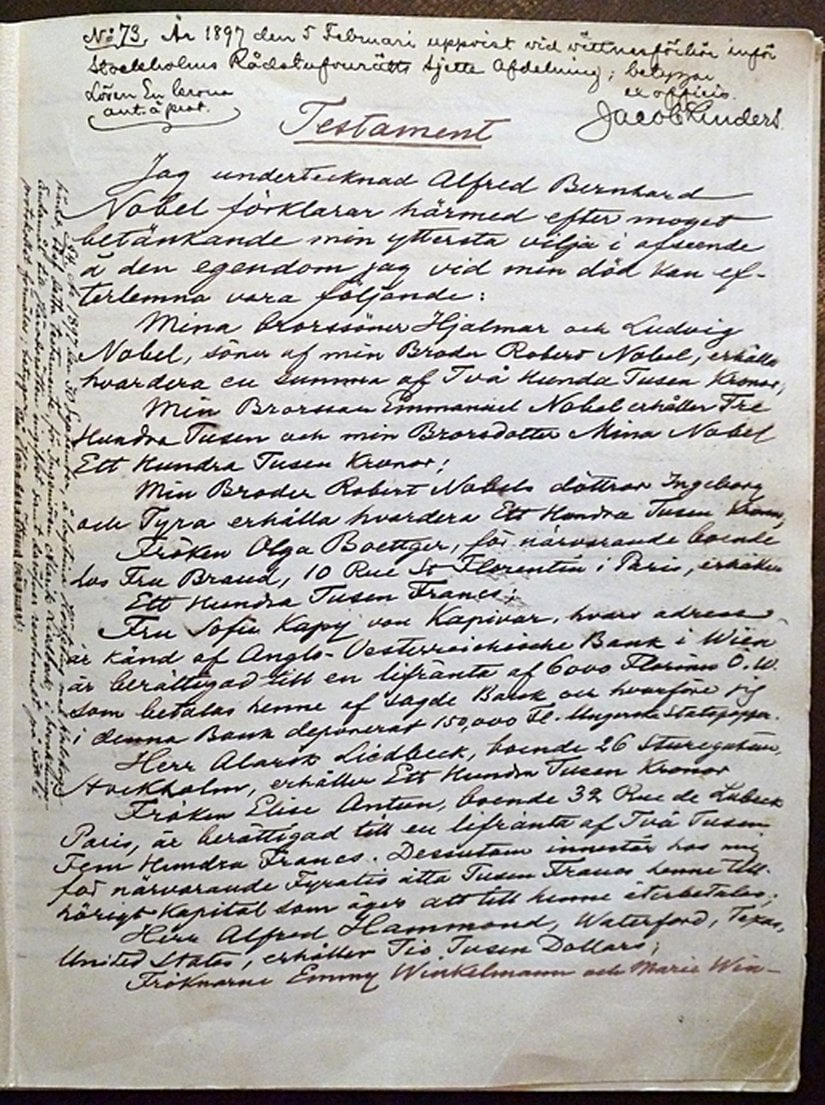 No 73. År 1897 den 5 Februari uppvist vid vittnesförhör inför
Stockholms Rådstufvurätts Sjette Afdelning; betygar
ex officio.
Jacob Linders
Testament
Jag undertecknad Alfred Bernhard
Nobel förklarar härmed efter moget
betänkande min yttersta vilja i afseende
å den egendom jag vid min död kan ef-
terlemna vara följande:
Mina brorssöner Hjalmar och Ludvig
Nobel, söner af min Broder Robert Nobel, erhålla
hvardera en summa af Två Hundra Tusen Kronor,
Min Brorsson Emmanuel Nobel erhåller Tre
Hundra Tusen och min Brorsdotter Mina Nobel
Ett Hundra Tusen Kronor;
Min Broder Robert Nobels döttrar Ingeborg
och Tyra erhålla hvardera Ett Hundra Tusen Kronor;
Fröken Olga Boettger, för närvarande boende
hos Fru Brand, 10 Rue St Florentin i Paris, erhåller
Ett Hundra Tusen Francs;
Fru Sofie Kapy von Kapivar, hvars adress
är känd af Anglo-Oesterreichische Bank i Wien
är berättigad till en lifränta af 6000 Florins Ö.W.
som betalas henne af sagde Bank och hvarföre jag
i denna Bank deponerat 150,000 Fl. Ungerska Statspapper.
Herr Alarik Liedbeck, boende 26 Sturegatan,
Stockholm, erhåller Ett Hundra Tusen Kronor
Fröken Elise Antun, boende 32 Rue de Lubeck
Paris, är berättigad till en lifränta af Två Tusen
Fem Hundra Francs. Dessutom innestår hos mig
för närvarande Fyratio åtta Tusen Francs henne till-
hörigt Kapital som äger att till henne återbetalas;
Herr Alfred Hammond, Waterford, Texas,
United States, erhåller Tio Tusen Dollars;
Fröknarne Emmy Winkelmann och Marie Win-